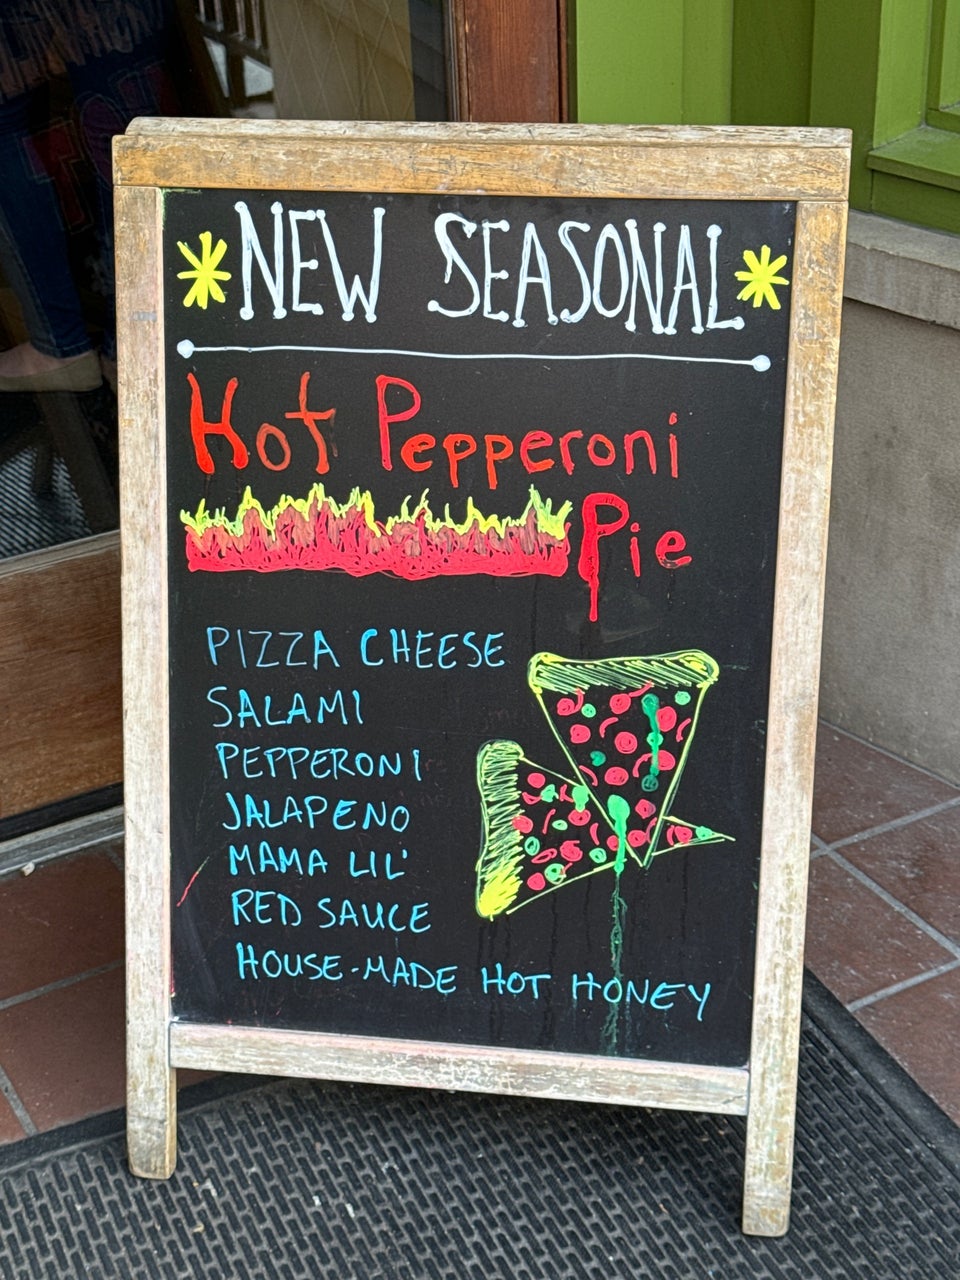 NEW SEASONAL
Hot Pepperoni
Pie
PIZZA CHEESE
SALAMI
PEPPERONI
JALAPENO
MAMA LIL'
RED SAUCE
HOUSE-MADE HOT HONEY